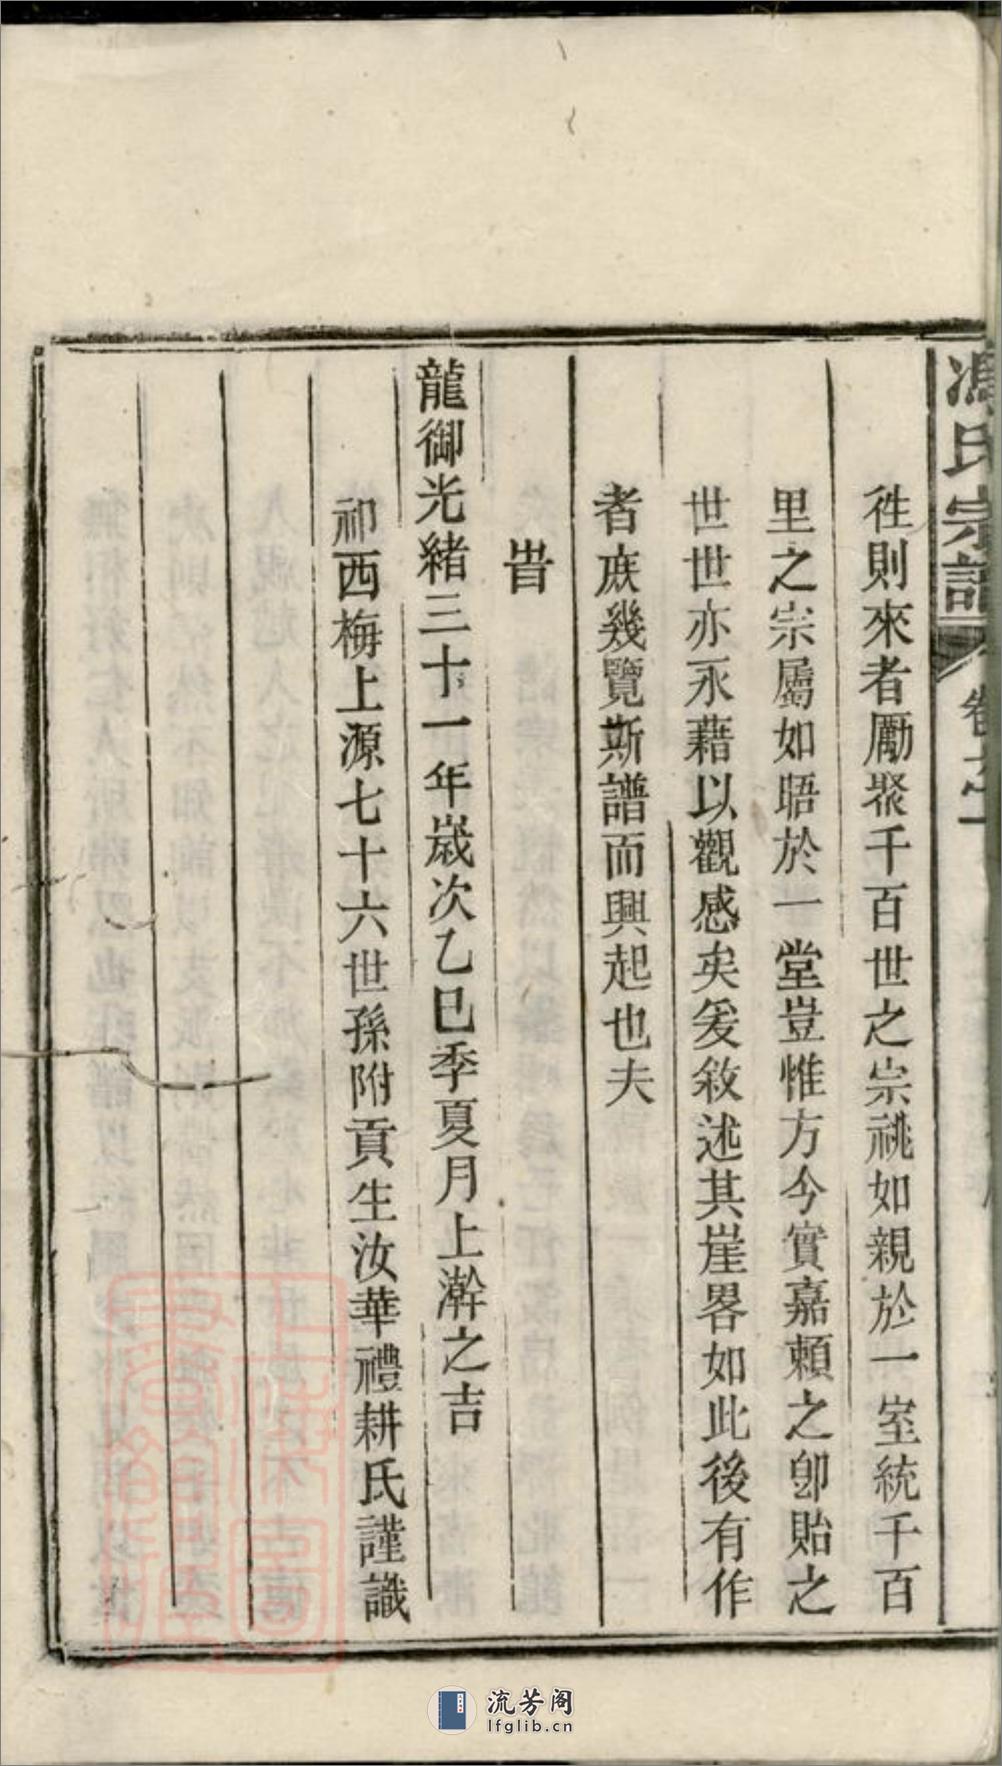 馮氏宗譜
卷之一
徃則來者勵聚千百世之宗祧如親於一室統千百
里之宗屬如晤於一堂豈惟方今實嘉賴之卽貽之
世世亦永藉以觀感矣爰敘述其崖畧如此後有作
者庶幾覽斯譜而興起也夫
旹
龍御光緒三十一年歲次乙巳季夏月上澣之吉
祁西梅上源七十六世孫附貢生汝華禮耕氏謹識
流芳阁
lfglib.cn